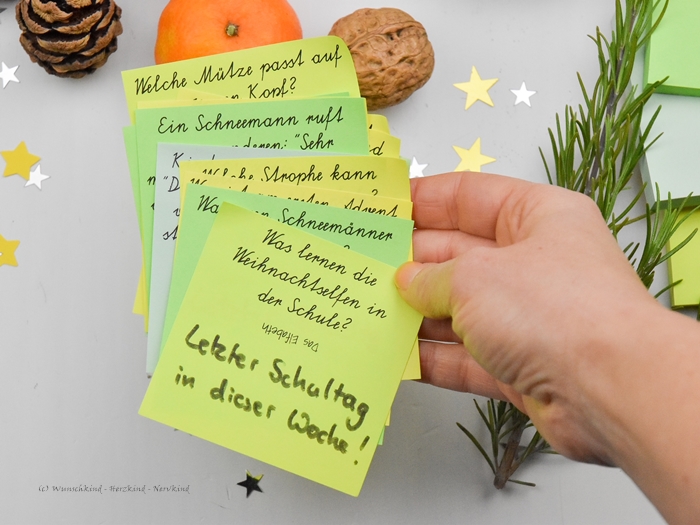 Welche Mütze passt auf
Kopf?
Ein Schneemann ruft
anderen: "Sehr
Welche Strophe kann
ersten Advent
Schneemänner
Was lernen die
Weihnachtselfen in
der Schule?
Das Elfabeth
Letzter Schultag
in dieser Woche!
(c) Wunschkind - Herzkind - Nervkind